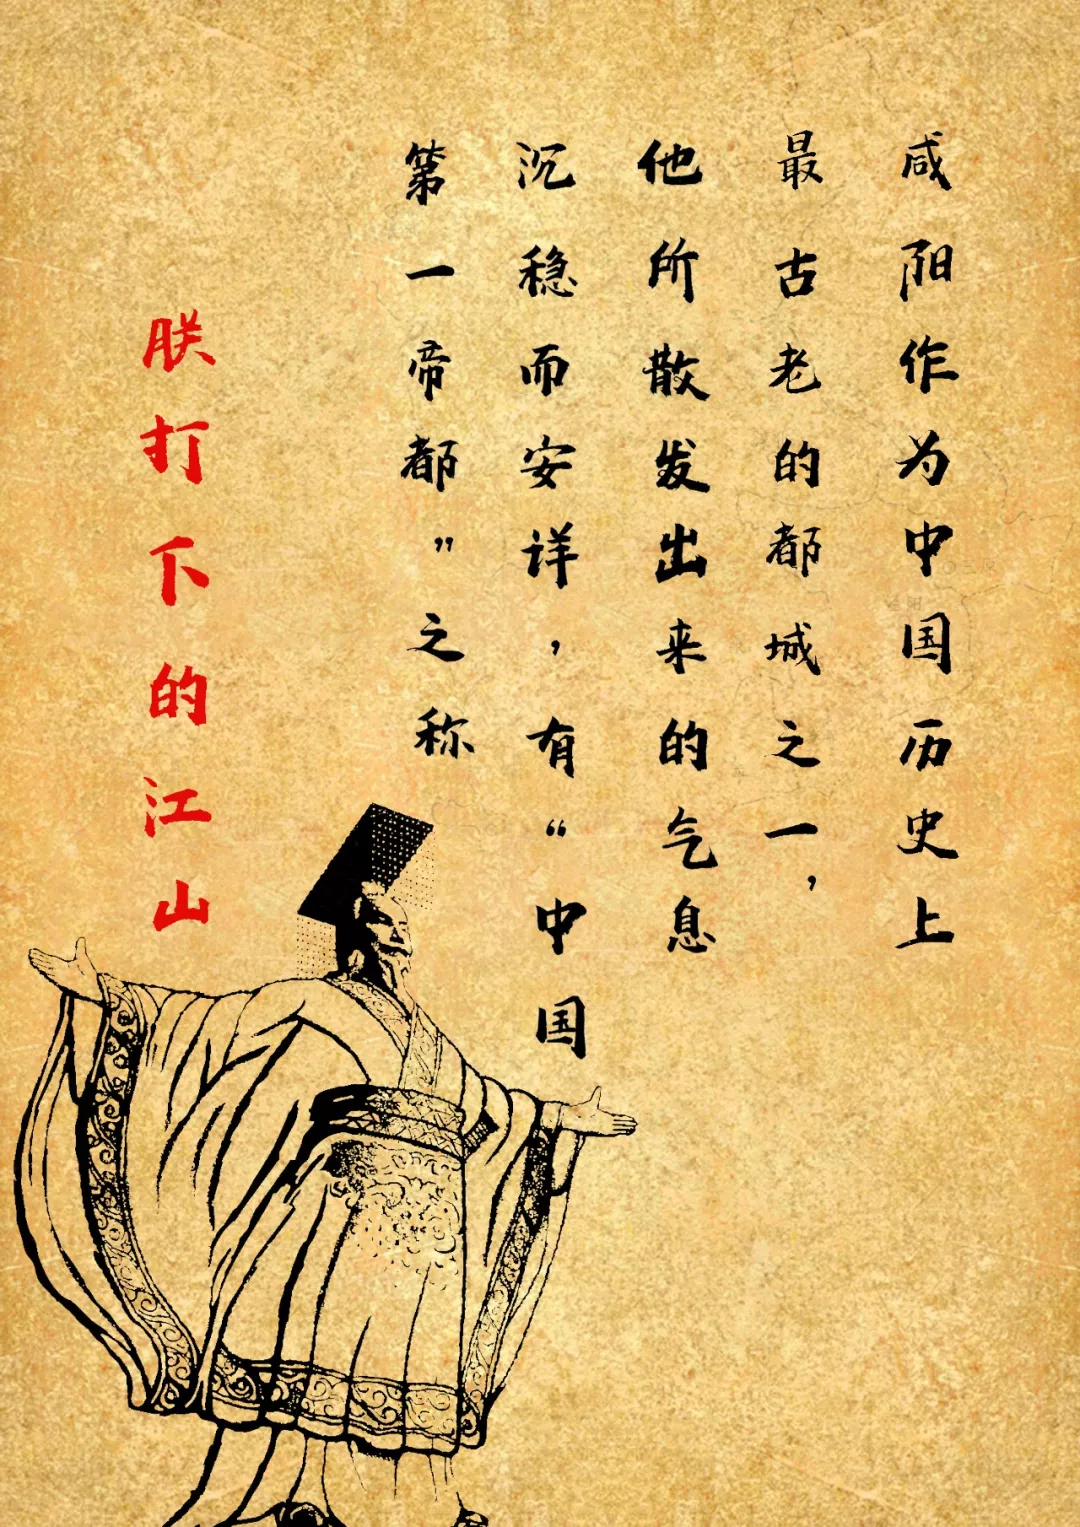 咸阳作为中国历史上
最古老的都城之一，
他所散发出来的气息
沉稳而安详，有“中国
第一帝都”之称
朕打下的江山